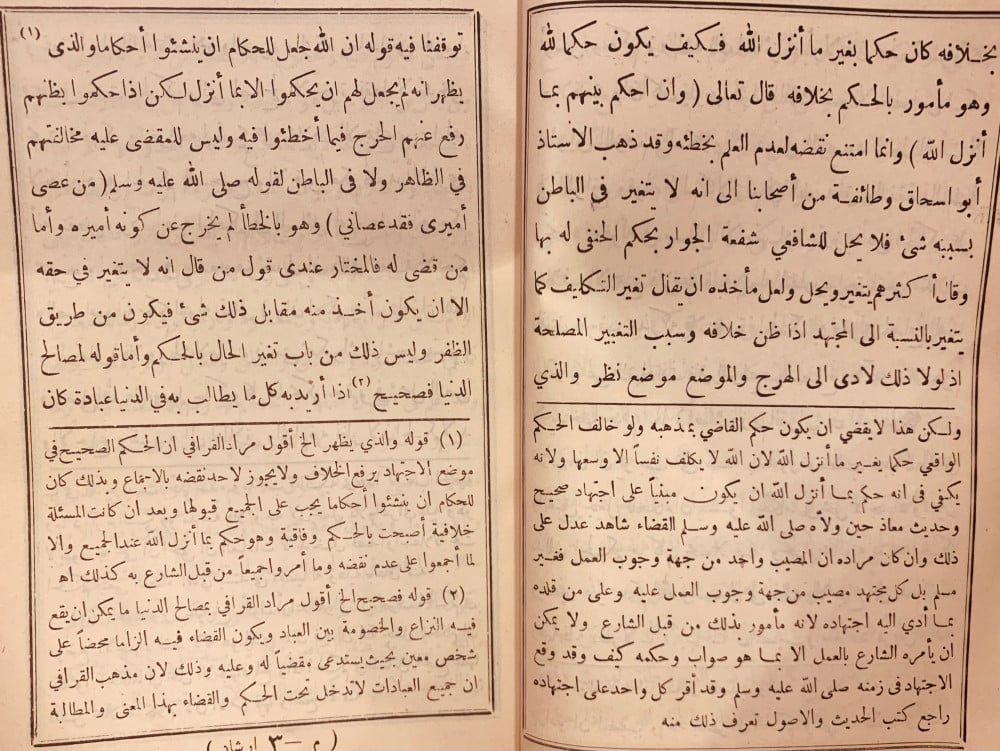 بخلافه كان حكما بغير ما أنزل الله فكيف يكون حكما لله
وهو مأمور بالحكم بخلافه قال تعالى (وان احكم بينهم بما
أنزل الله) وانما امتنع نقضه لعدم العلم بخطئه وقد ذهب الاستاذ
أبو اسحاق وطائفة من أصحابنا الى انه لا يتغير في الباطن
بسببه شئ فلا يحل للشافعي شفعة الجوار بحكم الحنفى له بها
وقال أكثرهم يتغير ويحل ولعل مأخذه ان يقال تغير التكايف كما
يتغير بالنسبة الى المجتهد اذا ظن خلافه وسبب التغيير المصلحة
اذ لولا ذلك لادى الى الهرج والموضع موضع نظر والذي
ولكن هذا لا يقضي ان يكون حكم القاضي بمذهبه ولو خالف الحكم
الواقعي حكما بغير ما أنزل الله لان الله لا يكلف نفساً الا وسعها ولانه
يكفى في انه حكم بما أنزل الله ان يكون مبنياً على اجتهاد صحيح
وحديث معاذ حين ولاه صلى الله عليه وسلم القضاء شاهد عدل على
ذلك وان كان مراده ان المصيب واحد من جهة وجوب العمل فغير
مسلم بل كل مجتهد مصيب من جهة وجوب العمل عليه وعلى من قلده
بما أدي اليه اجتهاده لانه مأمور بذلك من قبل الشارع ولا يمكن
ان يأمره الشارع بالعمل الا بما هو صواب وحكمه كيف وقد وقع
الاجتهاد فى زمنه صلى الله عليه وسلم وقد أقر كل واحد على اجتهاده
راجع كتب الحديث والاصول تعرف ذلك منه
توقفنا فيه قوله ان الله جعل للحكام ان ينشئوا أحكاما والذى (١)
يظهر انه لم يجعل لهم ان يحكموا الا بما أنزل لكن اذا حكموا بظنهم
رفع عنهم الحرج فيما أخطئوا فيه وليس للمقضى عليه مخالفتهم
في الظاهر ولا فى الباطن لقوله صلى الله عليه وسلم (من عصى
أميرى فقد عصاني) وهو بالخطأ لم يخرج عن كونه أميره وأما
من قضى له فالمختار عندى قول من قال انه لا يتغير في حقه
الا ان يكون أخذ منه مقابل ذلك شئ فيكون من طريق
الظفر وليس ذلك من باب تغير الحال بالحكم وأما قوله لمصالح
الدنيا فصحيح (٢) اذا أريد به كل ما يطالب به في الدنيا عبادة كان
(١) قوله والذي يظهر الخ أقول مراد القرافي ان الحكم الصحيح في
موضع الاجتهاد يرفع الخلاف ولا يجوز لاحد نقضه بالاجماع وبذلك كان
للحكام ان ينشئوا أحكاما يجب على الجميع قبولها وبعد أن كانت المسئلة
خلافية أصبحت بالحكم وفاقية وهو حكم بما أنزل الله عند الجميع والا
لما أجمعوا على عدم نقضه وما أمروا جميعاً من قبل الشارع به كذلك اه
(٢) قوله فصحيح الخ أقول مراد القرافي بمصالح الدنيا ما يمكن ان يقع
فيه النزاع والخصومة بين العباد ويكون القضاء فيه الزاما محضاً على
شخص معين بحيث يستدعى مقضياً له وعليه وذلك لان مذهب القرافي
ان جميع العبادات لا تدخل تحت الحكم والقضاء بهذا المعنى والمطالبة
(م — ٣ ارشاد)